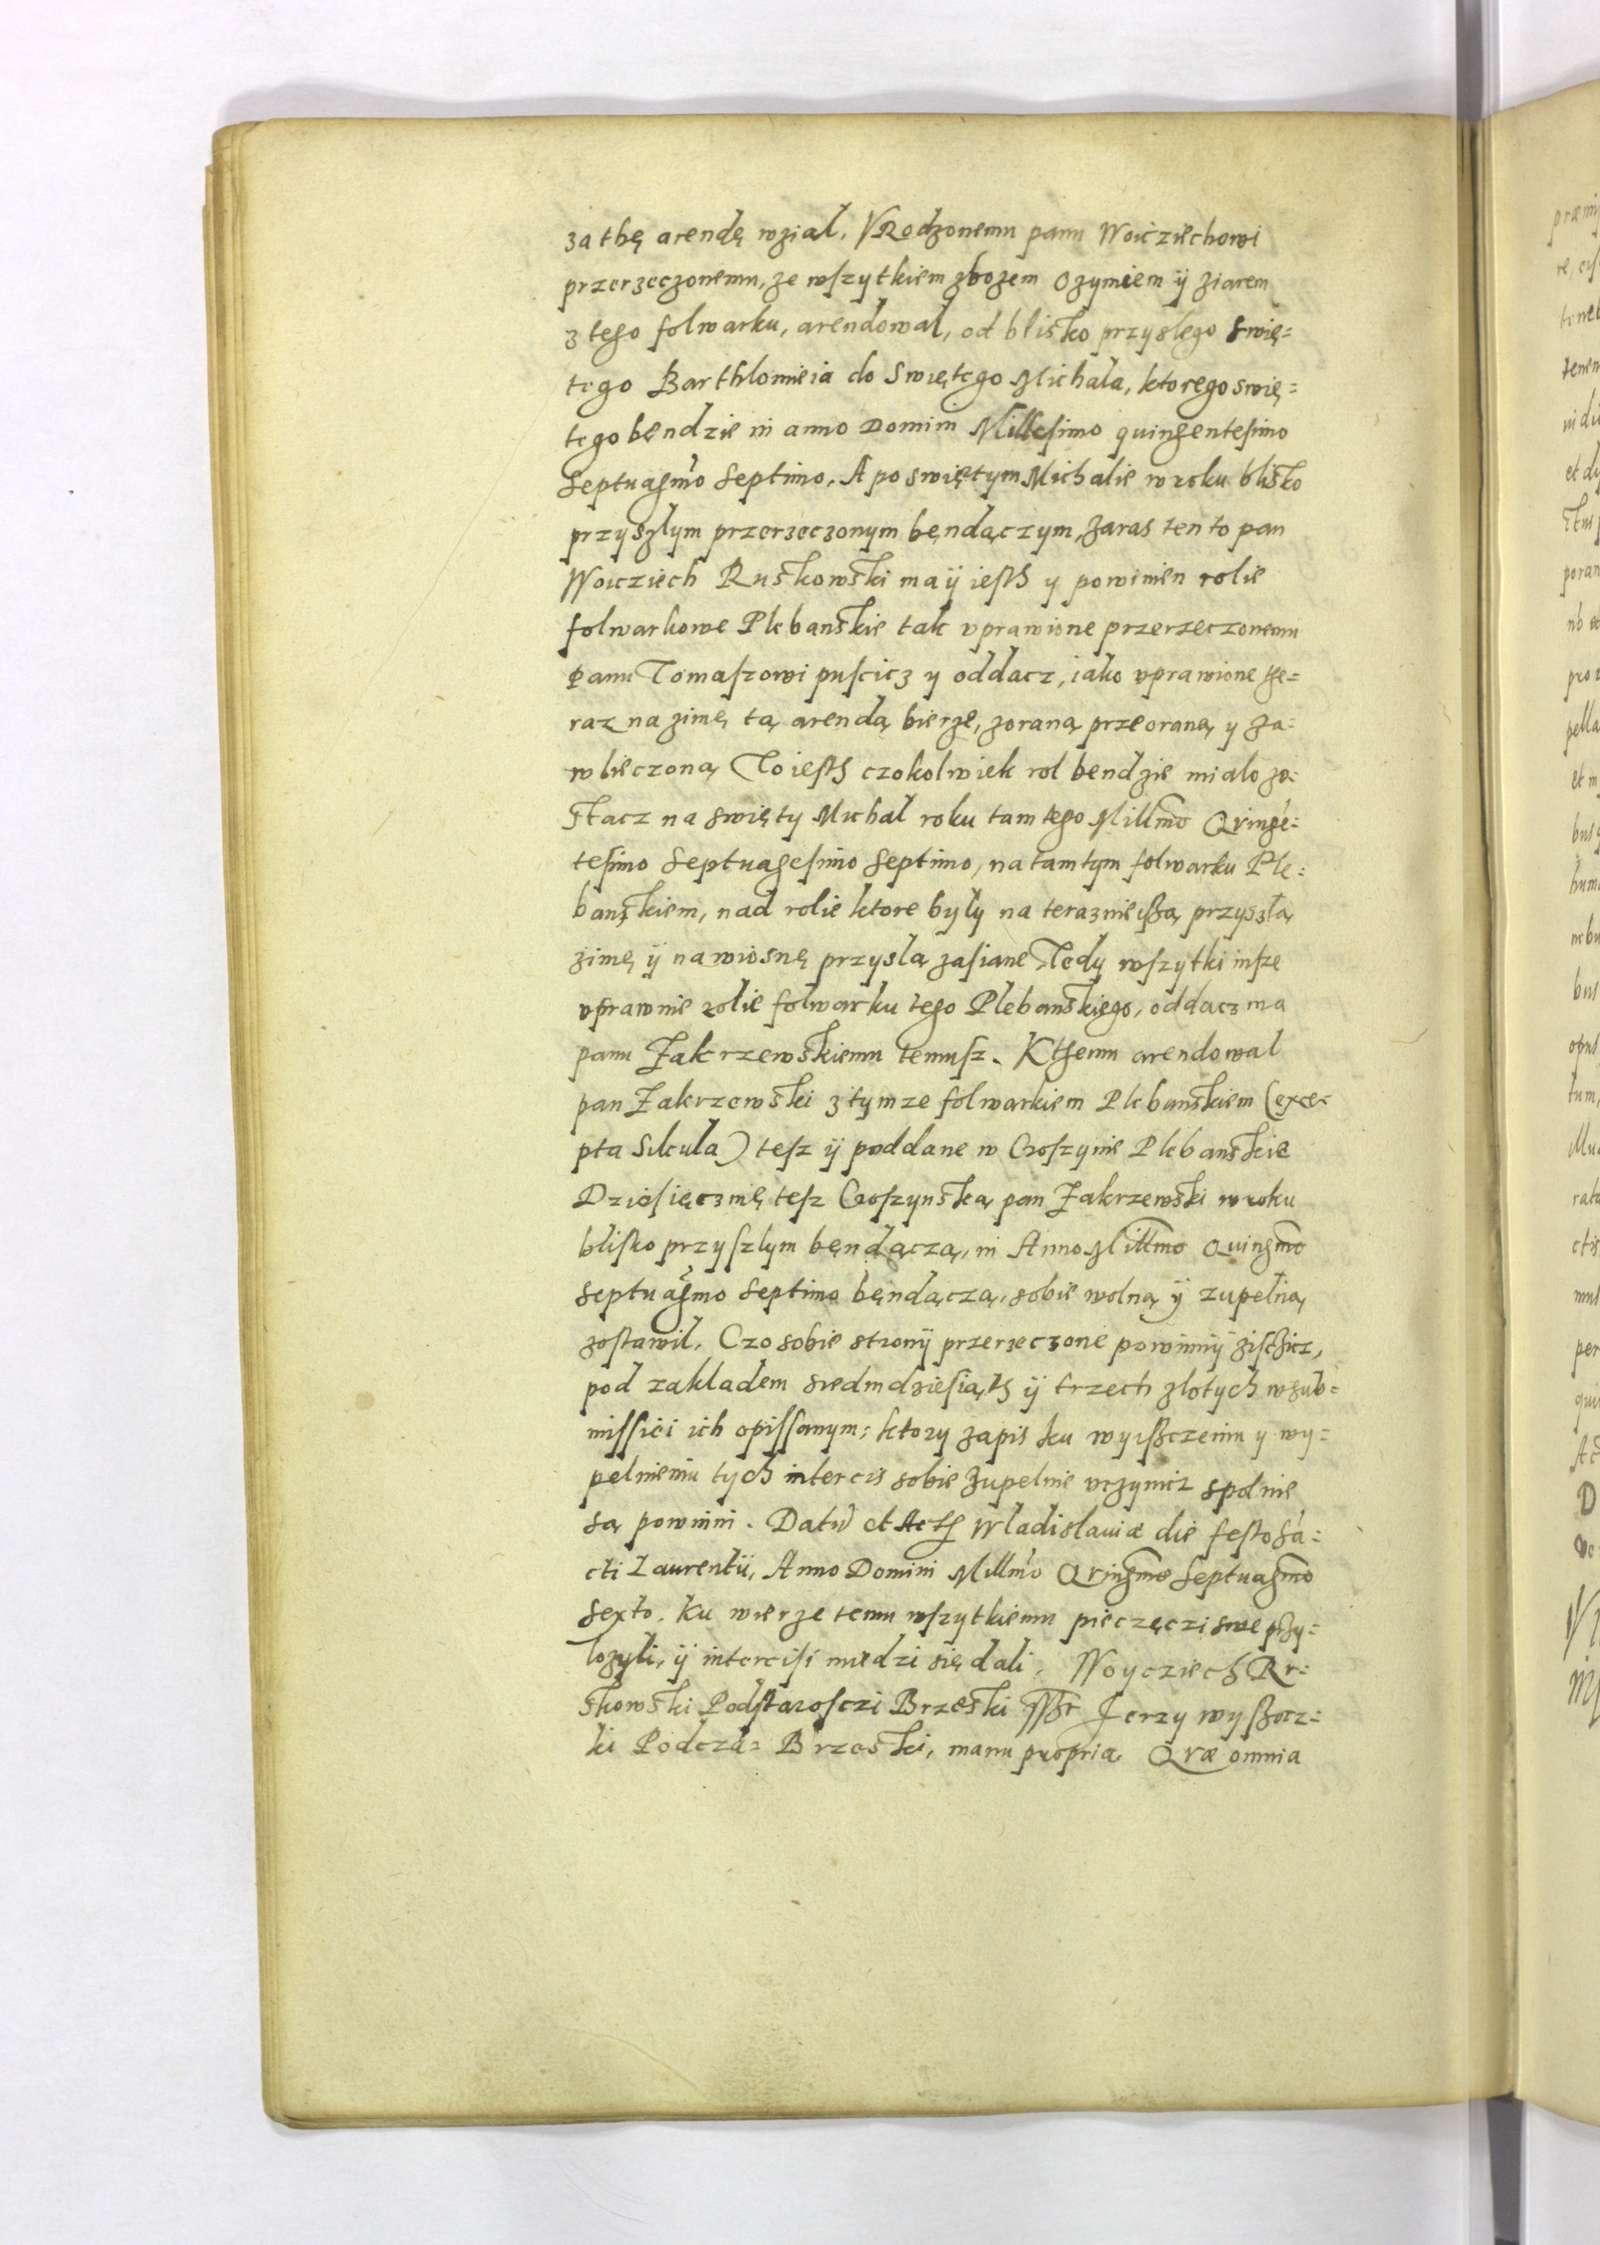 za thę arendę wzial. VRodzonemu panu Woicziechowi
przerzeczonemu, ze wszytkiem zbozem Ozymiem ÿ ziarem
z tego folwarku, arendowal, od blisko przyslego swię=
tego Barthlomieia do Swiętego Michala, ktorego swię=
tego bendzie in anno Domini Millesimo quingentesimo
Septuagmo Septimo. A po swiętym Michalie w roku blisko
przyszlym przerzeczonym bęndączym, zaras ten to pan
Woicziech Ruskowski ma ÿ iesth y powinien rolie
folwarkowe Plebanskie tak vprawione przerzeczonemu
Panu Tomaszowi puscicz y oddacz, iako vprawione te=
raz na zimę tą arendą bierze, zoraną przeoraną y za=
wlieczoną To iesth czokolwiek rol bendzie mialo zo=
stacz na swięty Michal roku tamtego Millmo Qvinge=
tesimo Septuagesimo Septimo, na tamtym folwarku Ple=
banskiem, nad rolie ktore byly na teraznieiszą przyszlą
zimę ÿ na wiosnę przyslą zasiane Tedy wszytki insze
vprawnie rolie folwarku tego Plebanskiego, oddacz ma
panu Zakrzewskiemu temusz. K themu arendowal
pan Zakrzewski z tymze folwarkiem Plebanskiem (exce=
pta Sucula) tesz ÿ poddane w Croszynie Plebanskie
Dziesięcznię tesz Croszynską pan Zakrzewski w roku
blisko przyszlym bęndączą, in Anno Millmo Quingmo
septuagmo Septimo bęndączą, sobie wolną ÿ zupelną
zostawil. Czo sobie stronÿ przerzeczone powinnÿ zisczicz,
pod zakladem siedmdziesiąth ÿ trzech zlotych w sub=
missiei ich opissanym; ktory zapis ku wyisczeniu y wy=
pelnieniu tych intercis sobie zupelnie vczynicz spolnie
są powinni. Datum et Acth Wladislaviæ die festo Sa=
cti Laurentii, Anno Domini Millmo Qvingmo Septuagmo
Sexto. Ku wierze temu wszytkiemu pieczęczi swe przy=
lozyli, ÿ intercisi miedzi się dali. Woycziech Rv=
skowski Podstarosczi Brzeski Jerzy Wyssocz=
ki Podcza= Brzeski, manu propria. Qvæ omnia